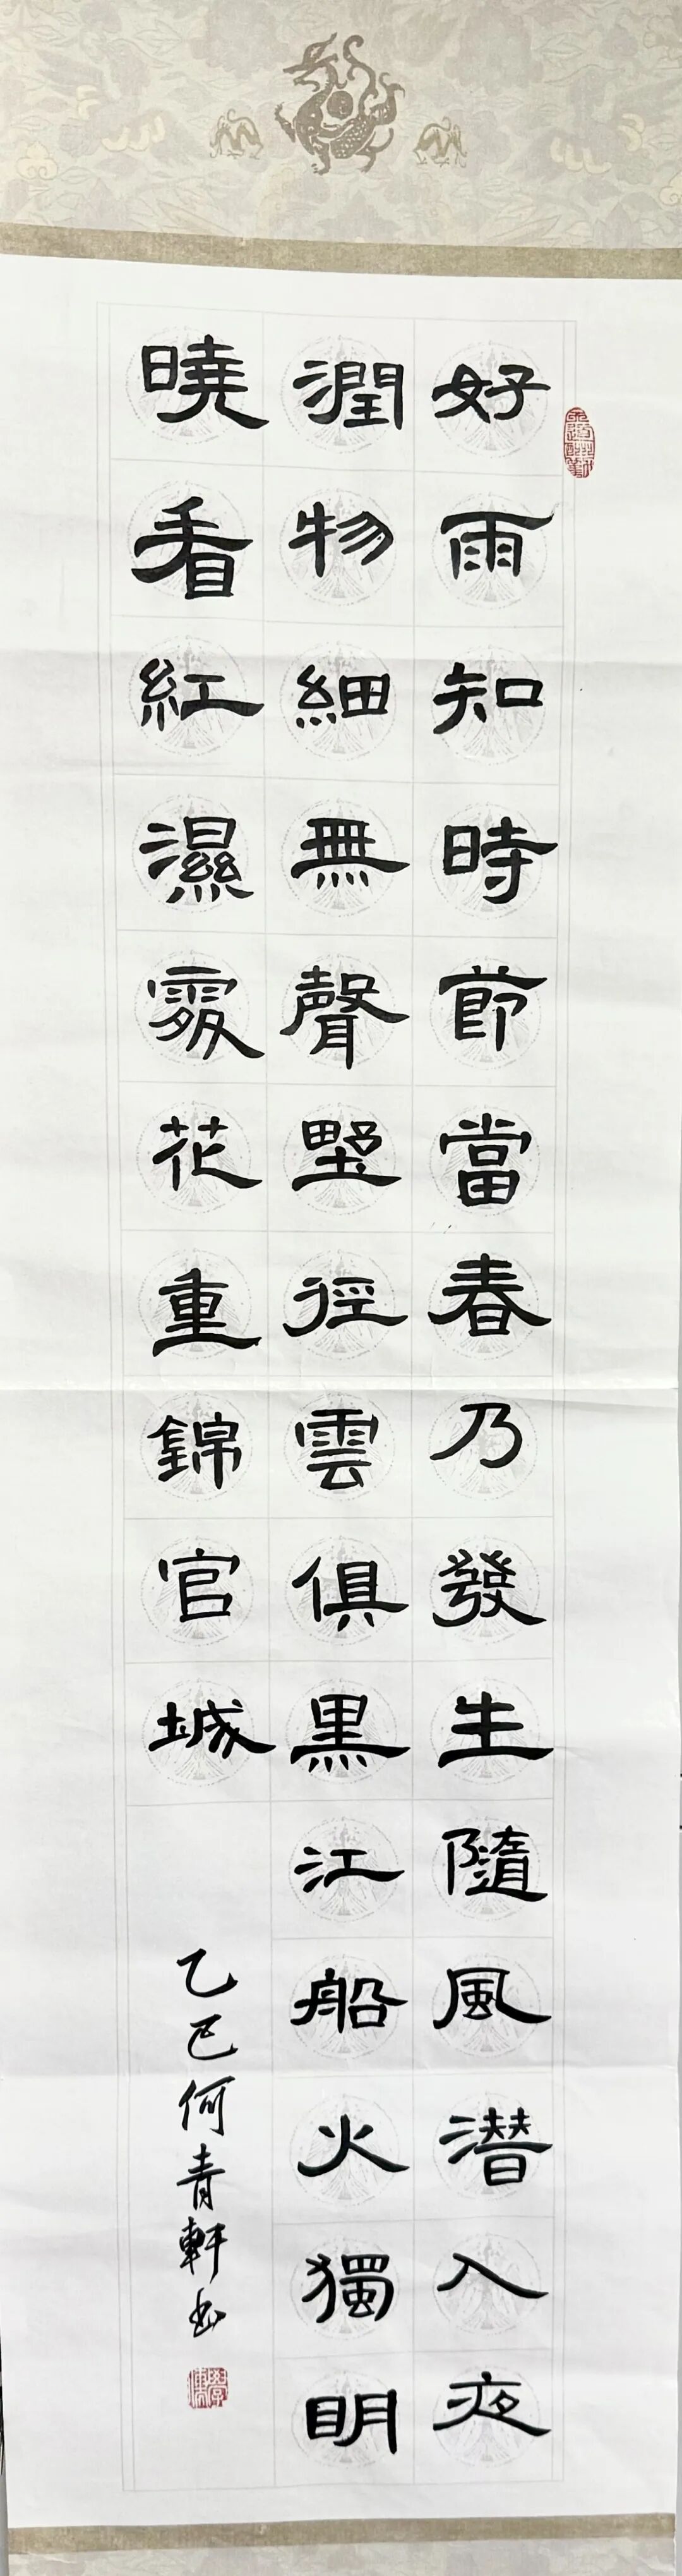 好雨知時節當春乃發生隨風潜入夜
潤物細無聲野徑雲俱黑江船火獨明
曉看紅濕處花重錦官城
乙巳何青軒书